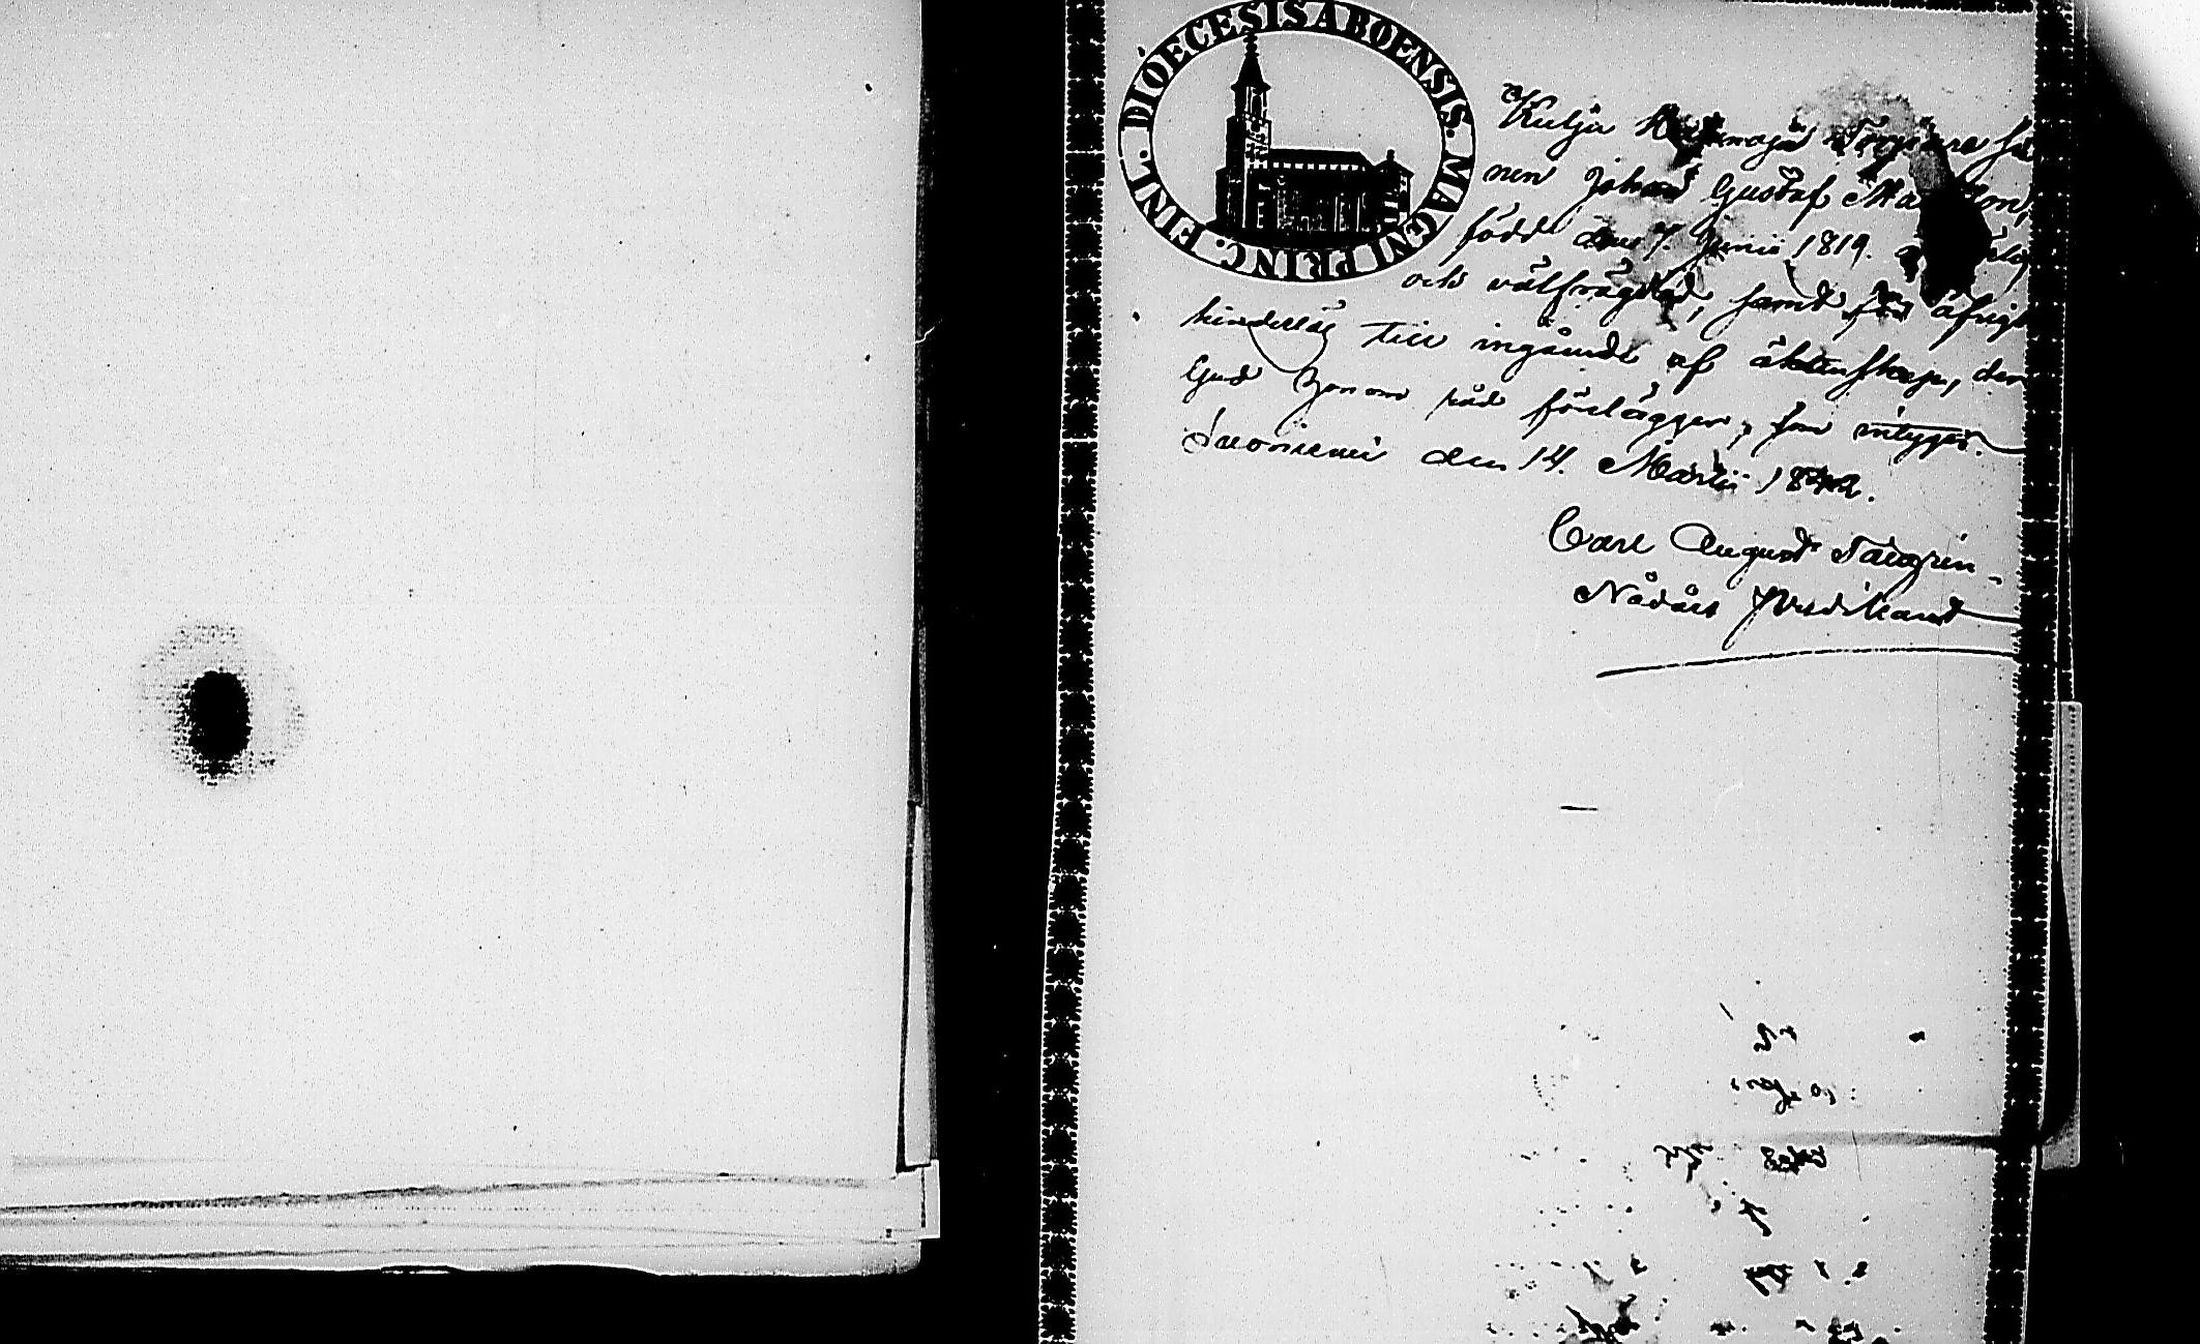 DIOECESIS ABOENSIS. MAGNI PRINC. FINL.
Kulju
nen Johan Gustaf
född den 7. Junii 1819.
och välfrägdad, samt för öfrigt
hinderlös till ingående af äktenskap, der
Gud honom råd förelägger, som intygas.
Suoniemi den 14. Martii 1842.
Carl August
Nådårs Predikant